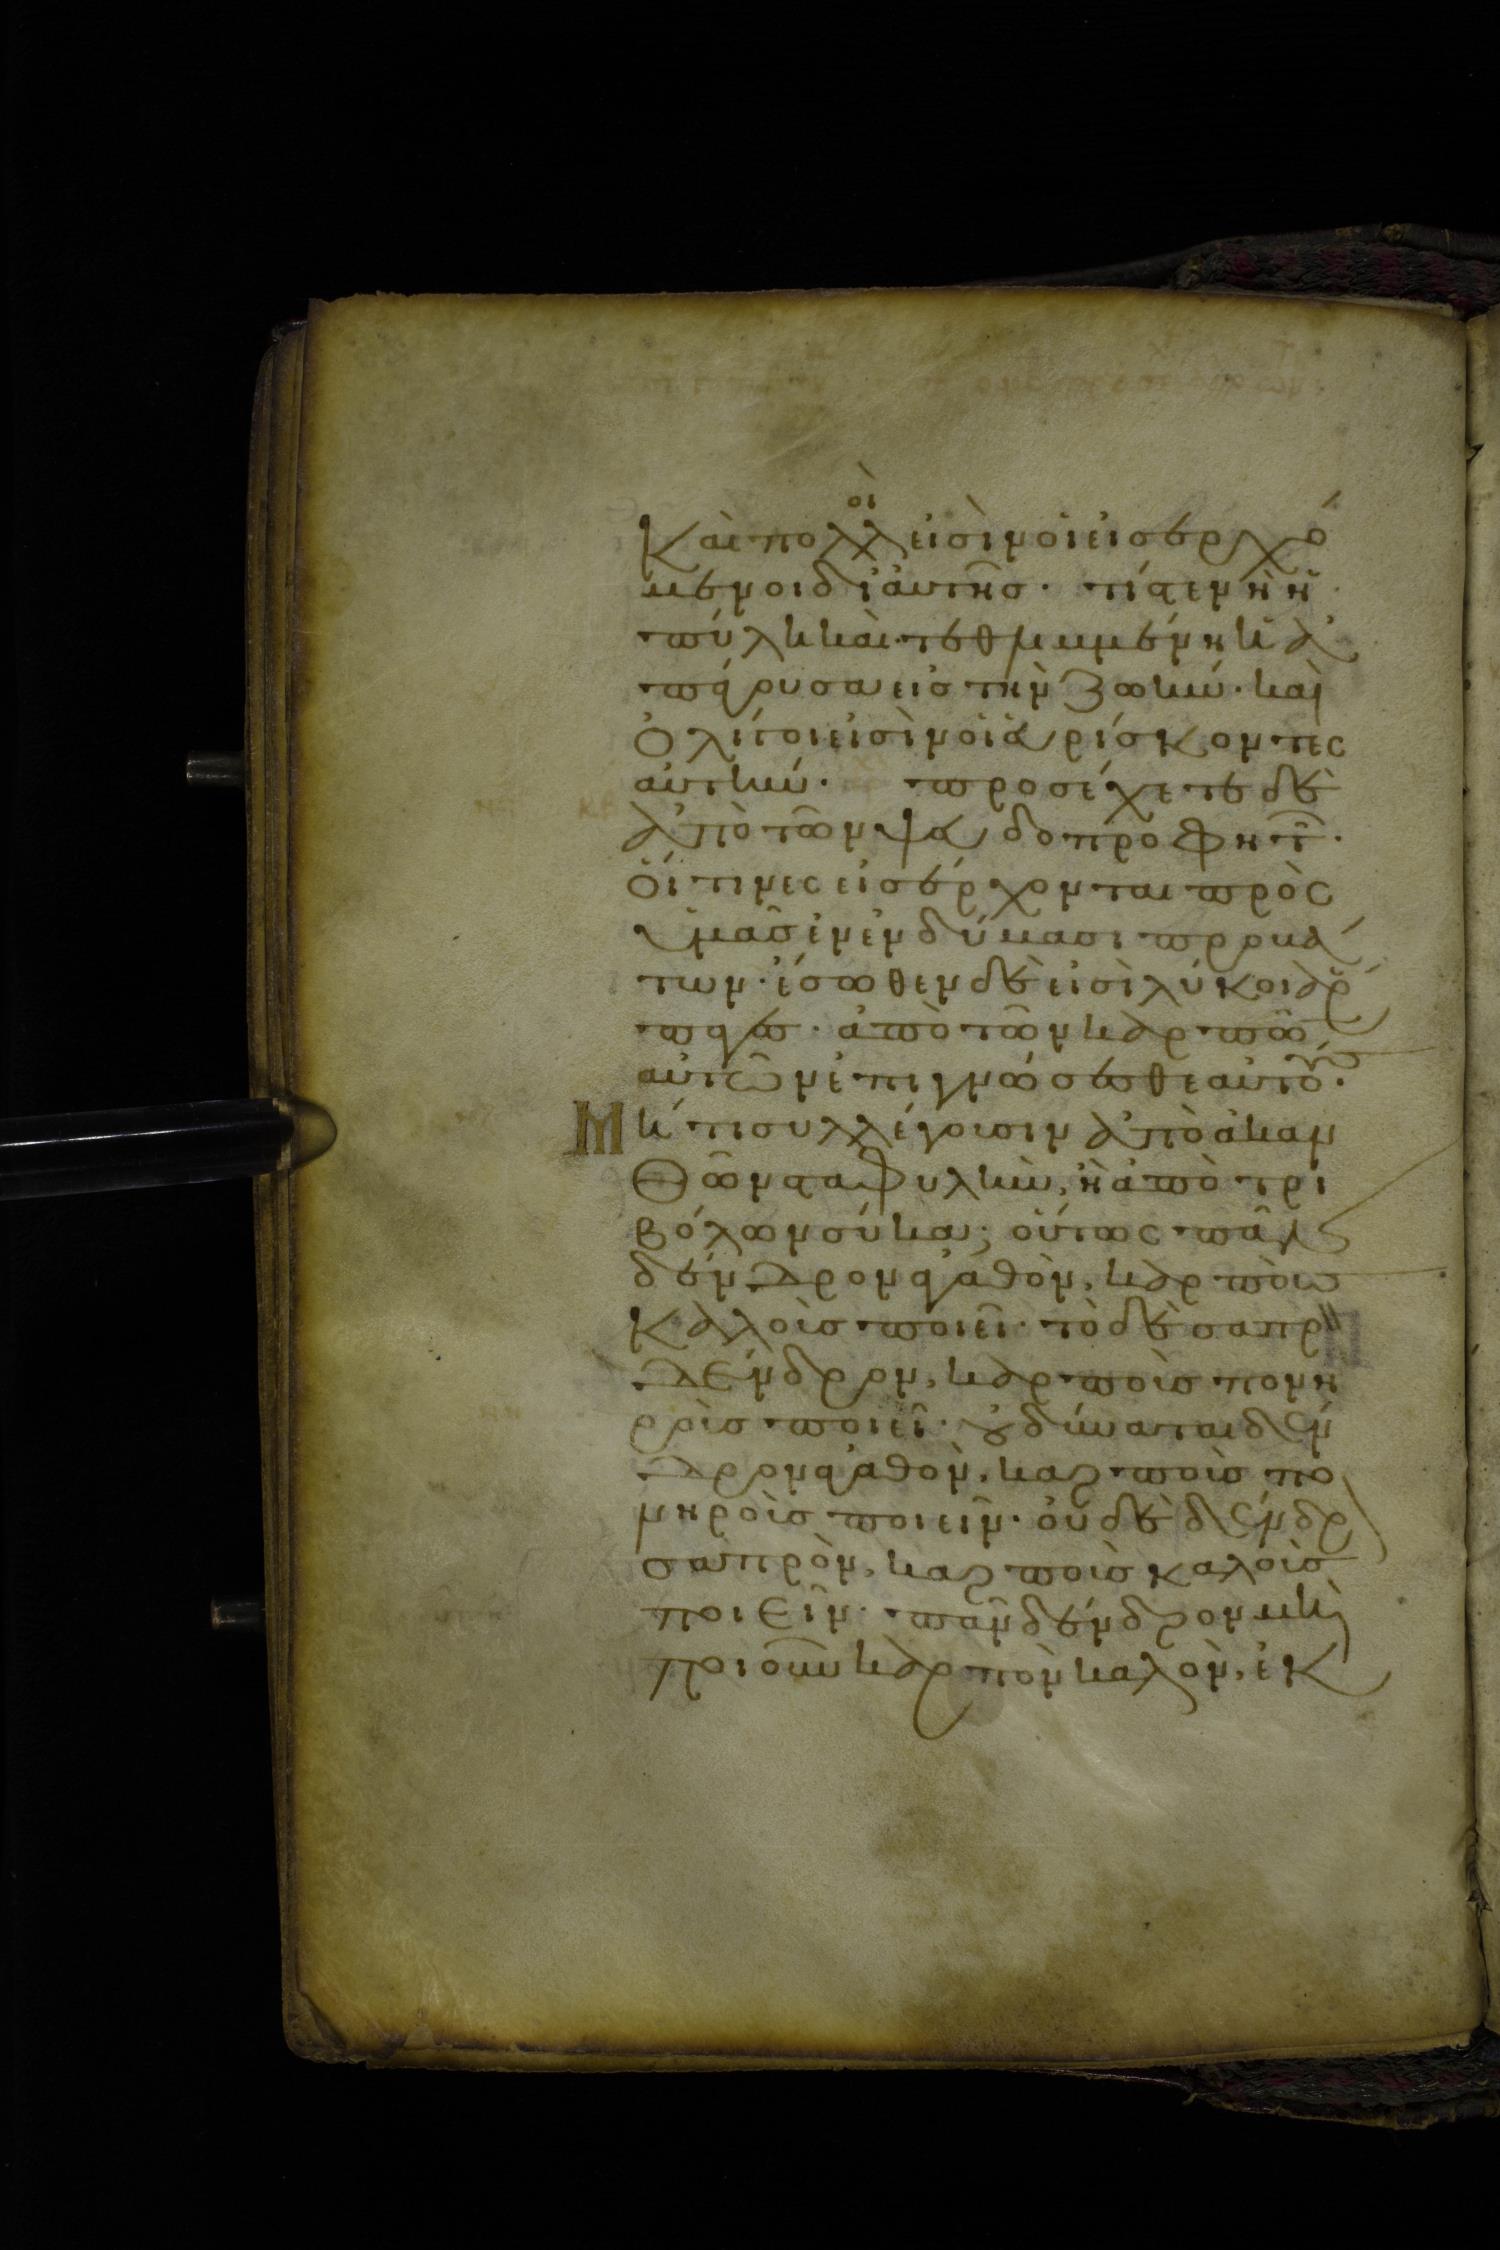 Καὶ πολλοὶ εἰσὶν οἱ εἰσερχό
μενοι δι αὐτῆς. τί στενὴ ἡ
πύλη καὶ τεθλιμμένη ἡ ἀ
πάγουσα εἰς τὴν ζωήν. καὶ
ὀλίγοι εἰσὶν οἱ εὑρίσκοντες
αὐτήν. προσέχετε δὲ
ἀπὸ τῶν ψευδοπροφητ.
οἵτινες εἰσέρχονται πρὸς
ὑμᾶς ἐν ἐνδύμασι προβά
των. ἔσωθεν δὲ εἰσὶ λύκοι ἅρ
παγες. ἀπὸ τῶν καρπῶν
αὐτῶν ἐπιγνώσεσθε αὐτούς.
Μήτι συλλέγουσιν ἀπὸ ἀκαν
θῶν σταφυλὴν, ἢ ἀπὸ τρι
βόλων σύκα; οὕτως πᾶν
δένδρον ἀγαθὸν, καρποὺς
καλοὺς ποιεῖ. τὸ δὲ σαπρὸν
δένδρον, καρποὺς πονη
ροὺς ποιεῖ. οὐ δύναται δέν
δρον ἀγαθὸν, καρποὺς πο
νηροὺς ποιεῖν. οὐδὲ δένδρ
σαπρὸν, καρποὺς καλοὺς
ποιεῖν. πᾶν δένδρον μὴ
ποιοῦν καρπὸν καλὸν, ἐκ